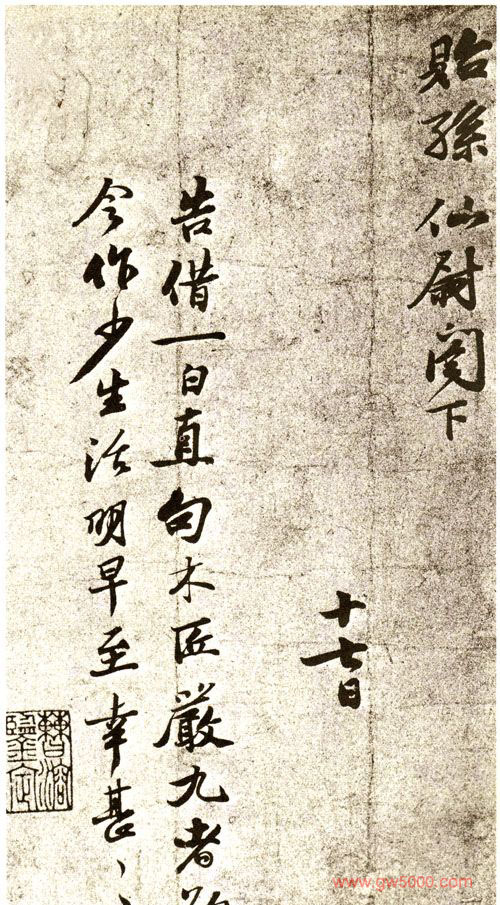 貽孫仙尉閣下
十七日
告借一白直句木匠嚴九者
令作少生活明早至幸甚、、
www.gw5000.com